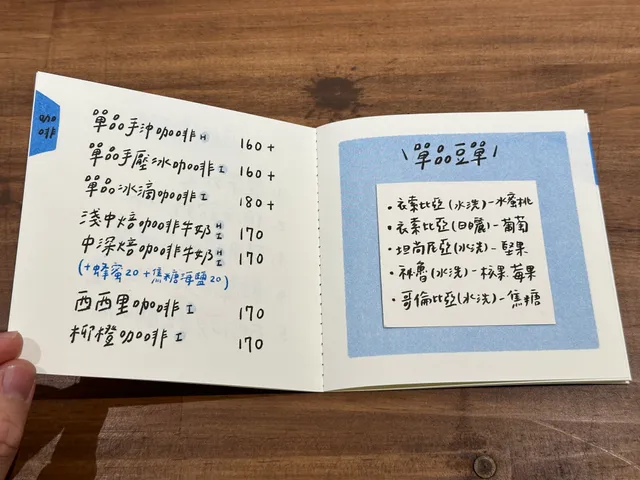 咖啡
單品手沖咖啡 H 160+
單品手壓冰咖啡 I 160+
單品冰滴咖啡 I 180+
淺中焙咖啡牛奶 H I 170
中深焙咖啡牛奶 H I 170
(+蜂蜜20 +焦糖海鹽20)
西西里咖啡 I 170
柳橙咖啡 I 170
\單品豆單/
・衣索比亞(水洗)-水蜜桃
・衣索比亞(日曬)-葡萄
・坦尚尼亞(水洗)-堅果
・祕魯(水洗)-核果.莓果
・哥倫比亞(水洗)-焦糖